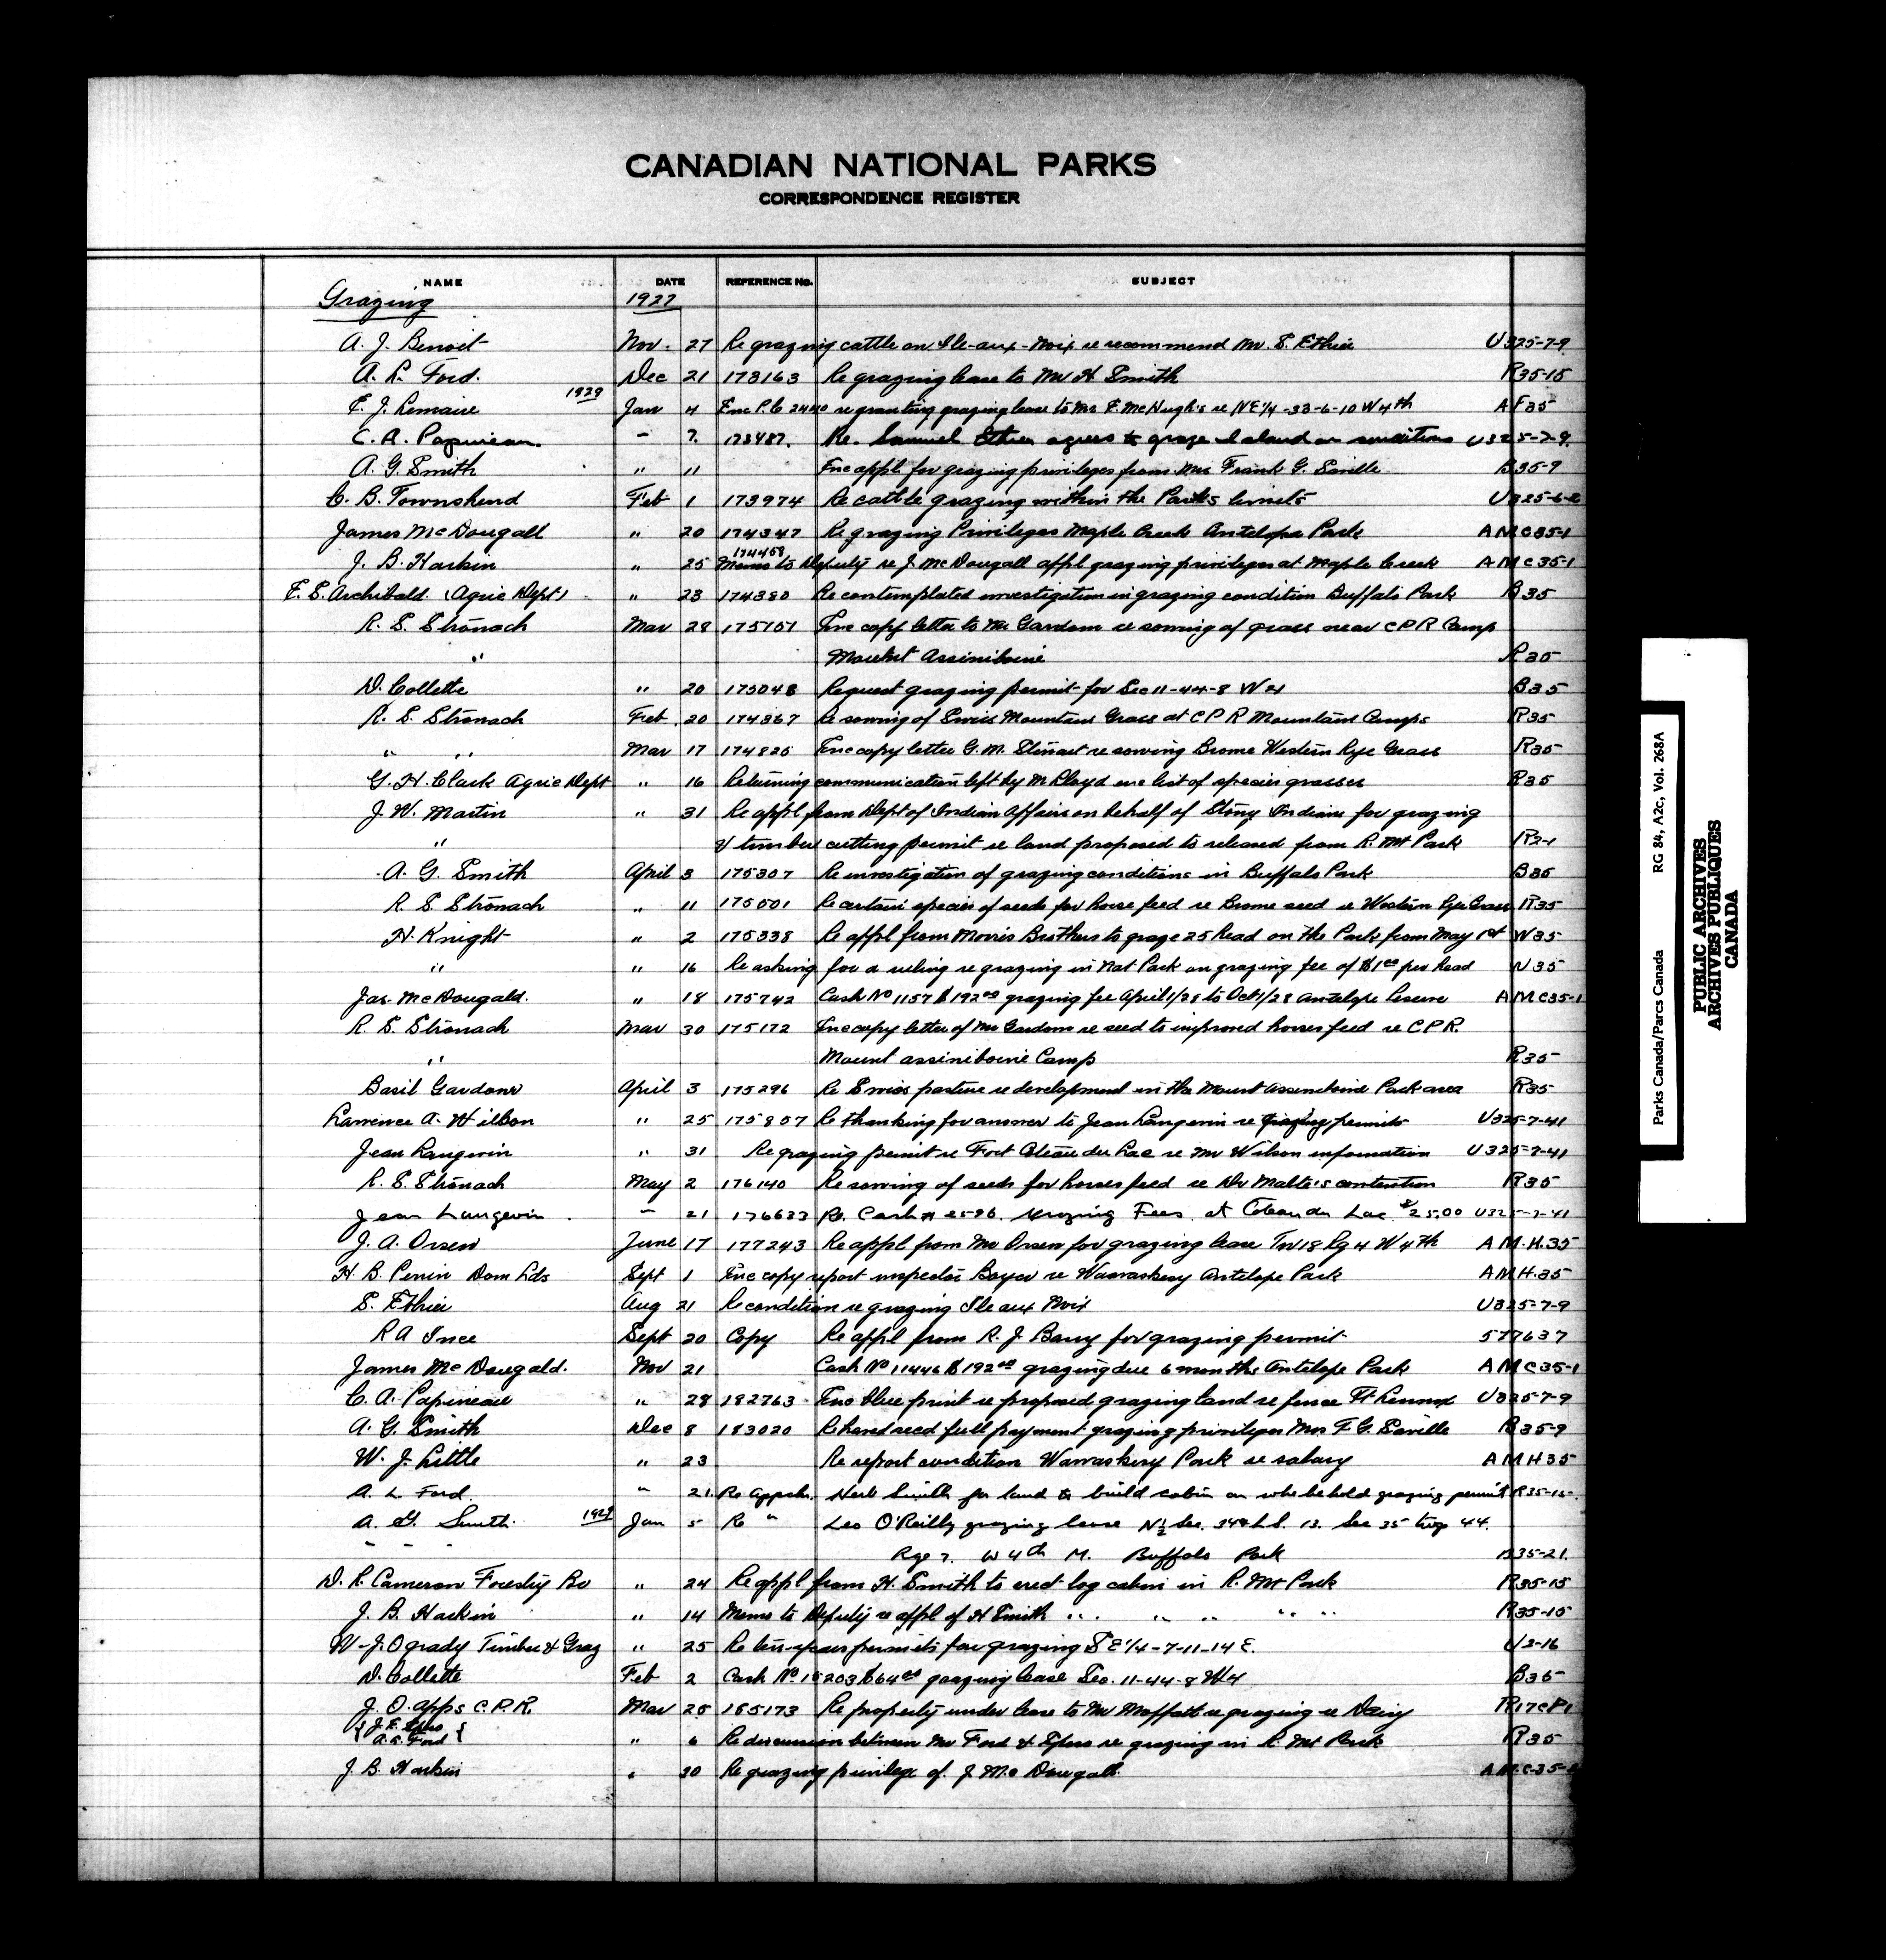 CANADIAN NATIONAL PARKS
CORRESPONDENCE REGISTER
NAME DATE REFERENCE No. SUBJECT
Grazing 1927
A. J. Benoit Nov. 27 Re grazing cattle on Ile-aux-Noix re recommend Mr. S. Ethier U325-7-9
A. L. Ford. Dec 21 173163 Re grazing lease to Mr H Smith R35-15
1929
F. J. Lemaire Jan 4 Enc P.C 2440 re granting grazing lease to Mr F. McHugh's re NE 1/4-33-6-10 W4th AF35
C. A. Papineau " 7. 173487. Re. Samuel Ethier agrees to graze Island on conditions U325-7-9.
A. G. Smith " 11 Enc appl for grazing privileges from Mrs Frank G. Saville B35-9
C. B. Townshend Feb 1 173974 Re cattle grazing within the Parks limits U325-6-2
James McDougall " 20 174347 Re grazing Privileges Maple Creek Antelope Park AMC35-1
174458
J. B. Harkin " 25 Memo to Deputy re J McDougall appl grazing privileges at Maple Creek AMC35-1
E. S. Archibald (Agric Dept) " 23 174380 Re contemplated investigation in grazing condition Buffalo Park B35
R. S. Stronach Mar 28 175151 Enc copy letter to Mr Gardom re sowing of grass near CPR Camp
" Mount Assiniboine R35
D. Collette " 20 175048 Request grazing permit for Sec 11-44-8 W4 B35
R. S. Stronach Feb. 20 174367 Re sowing of Swiss Mountain Grass at CPR Mountain Camps R35
" " Mar 17 174825 Enc copy letter G. M. Stewart re sowing Brome Western Rye Grass R35
G. H. Clark Agric Dept " 16 Returning communication left by Mr Lloyd enc list of species grasses R35
J. W. Martin " 31 Re appl from Dept of Indian Affairs on behalf of Stony Indians for grazing
" & timber cutting permit re land proposed to released from R. Mt Park R2-1
A. G. Smith April 3 175307 Re investigation of grazing conditions in Buffalo Park B35
R. S. Stronach " 11 175501 Re certain species of seeds for horse feed re Brome seed re Western Rye Grass R35
H. Knight " 2 175338 Re appl from Morris Brothers to graze 25 head on the Park from May 1st W35
" " 16 Re asking for a ruling re grazing in Nat Park on grazing fee of $1.00 per head W35
Jas. McDougald. " 18 175742 Cash No 1157 $192.00 grazing fee April 1/28 to Oct 1/28 Antelope Reserve AMC35-1
R. S. Stronach Mar 30 175172 Enc copy letter of Mr Gardom re seed to improved horses feed re C.P.R.
" Mount assiniboine Camp R35
Basil Gardom April 3 175296 Re Swiss pasture re development in the Mount Assiniboine Park area R35
Lawrence A. Wilson " 25 175857 Re thanking for answer to Jean Langevin re grazing permits U325-7-41
Jean Langevin " 31 Re grazing permit re Fort Coteau du Lac re Mr Wilson information U325-7-41
R. S. Stronach May 2 176140 Re sowing of seeds for horses feed re Dr Malte's contention R35
Jean Langevin. " 21 176633 Re. Cash # 2596. Grazing Fees. at Coteau du Lac. $25.00 U325-7-41
J. A. Orsen June 17 177243 Re appl from Mr Orsen for grazing lease Tw 18 Rg 4 W 4th A.M.H.35
H. B. Perrin Dom Lds Sept 1 Enc copy report inspector Boyer re Wawaskesy Antelope Park AMH.35
S. Ethier Aug 21 Re condition re grazing Ile aux Noix U325-7-9
R A Ince Sept 20 Copy Re appl from R. J. Barry for grazing permit 577637
James McDougald. Nov 21 Cash No 11446 $192.00 grazing due 6 months Antelope Park AMC35-1
C. A. Papineau " 28 182763 Enc blue print re proposed grazing land re fence Ft Lennox U325-7-9
A. G. Smith Dec 8 183020 Re have recd full payment grazing privileges Mrs F G. Saville B35-9
W. J. Little " 23 Re report condition Wawaskesy Park re salary AMH35
A. L. Ford. " 21. Re Appcln. Herb Smith for land to build cabin on who be hold grazing permit R35-15.
A. G. Smith. 1929 Jan 5 Re " Leo O'Reilly grazing lease N½ Sec. 34 & L.S. 13. Sec 35 twp 44.
" " " Rge 7. W 4th M. Buffalo Park B35-21.
D. R. Cameron Forestry Br " 24 Re appl from H. Smith to erect log cabin in R. Mt Park R35-15
J. B. Harkin " 14 Memo to Deputy re appl of H Smith " " " " " R35-15
W-J. Ogrady Timber & Graz " 25 Re permits for grazing SE 1/4-7-11-14 E. U2-16
D. Collette Feb 2 Cash No. 15203 $64.00 grazing lease Sec. 11-44-8 W4 B35
J. O. Apps C.P.R. Mar 25 185173 Re property under lease to Mr Moffatt re grazing re Dairy R17CP1
{ A. L. Ford } " 6 Re discussion between Mr Ford & re grazing in R. Mt Park R35
J. B. Harkin " 30 Re grazing privilege of J McDougall. AMC-35-1
Parks Canada/Parcs Canada RG 84, A2c, Vol. 268A
PUBLIC ARCHIVES
ARCHIVES PUBLIQUES
CANADA